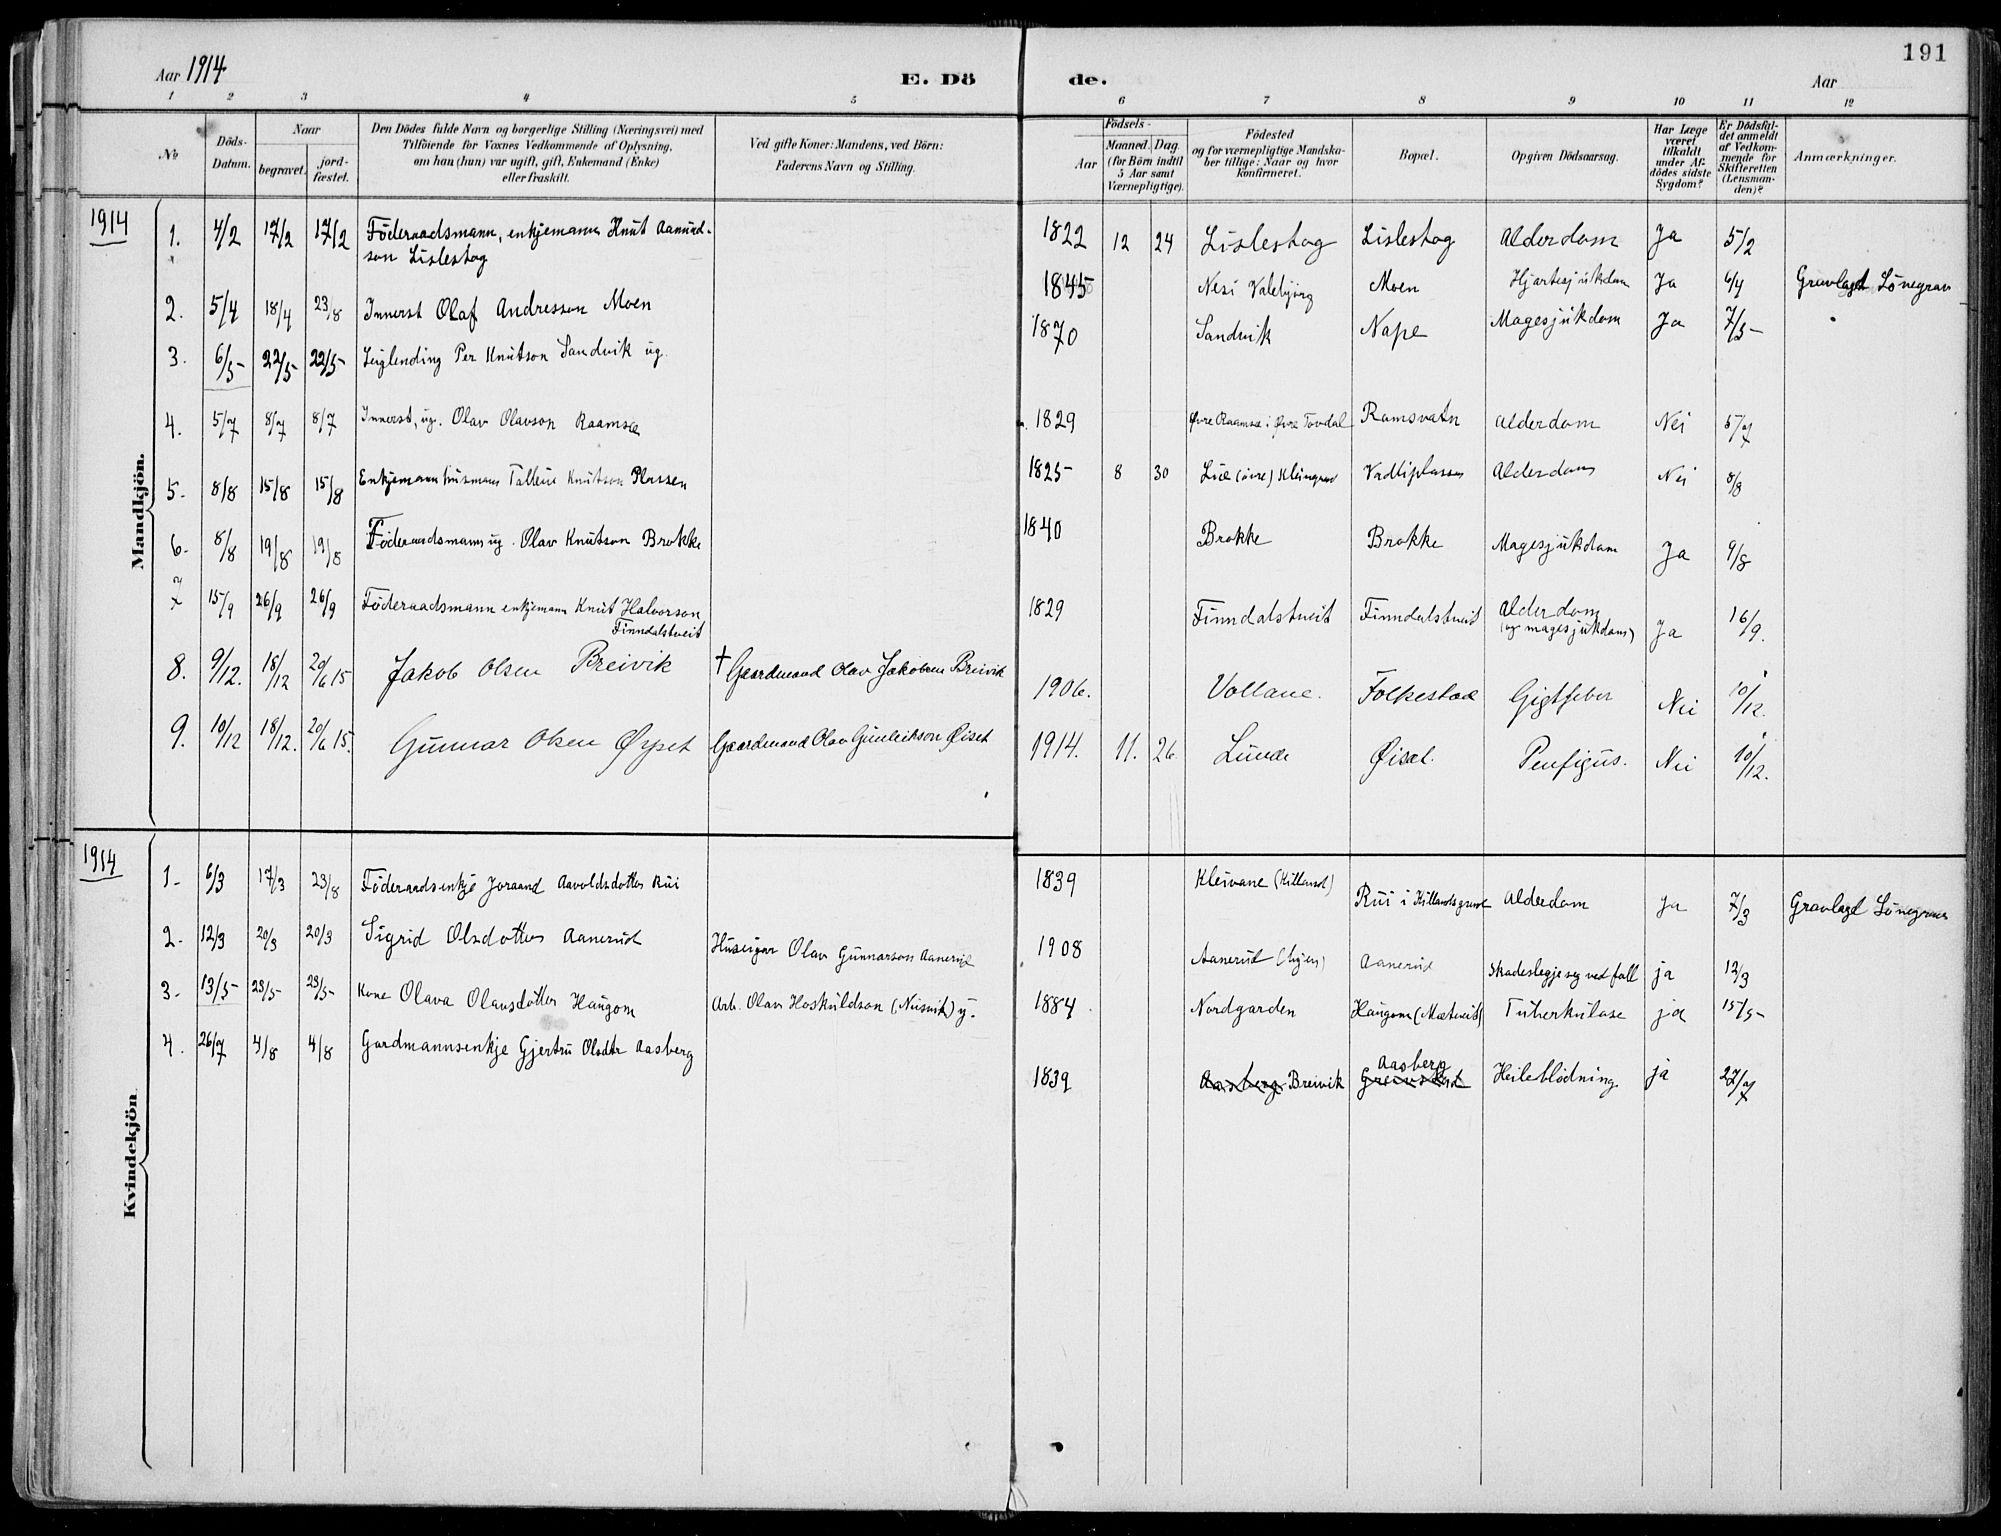 191
Aar 1914 E. Dö de. Aar
1 2 3 4 5 6 7 8 9 10 11 12
No
Döds-
Datum.
Naar
begravet. jord-
fæstet.
Den Dödes fulde Navn og borgerlige Stilling (Næringsvei) med
Tilföiende for Voxnes Vedkommende af Oplysning,
om han (hun) var ugift, gift, Enkemand (Enke)
eller fraskilt.
Ved gifte Koner: Mandens, ved Börn:
Faderens Navn og Stilling.
Födsels-
Aar
Maaned. Dag.
(for Börn indtil
5 Aar samt
Værnepligtige).
Födested
og for værnepligtige Mandska-
ber tillige: Naar og hvor
Konfirmeret.
Bopæl.
Opgiven Dödsaarsag.
Har Læge
været
tilkaldt
under Af-
dödes sidste
Sygdom?
Er Dödsfal-
det anmeldt
af Vedkom-
mende for
Skifteretten
(Lensman-
den)?
Anmærkninger.
Mandkjön.
1914
1. 4/2 17/2 17/2 Föderaadsmann, enkjemann Knut Aamund-
son Lislestog 1822 12 24 Lislestog Lislestog Alderdom Ja 5/2
2. 5/4 18/4 23/8 Innerst Olaf Andresson Moen 1845 Moen Hjartesjukdom Ja 6/4 Gravlagt Lönegrav
3. 6/5 22/5 22/5 Leiglending Per Knutson Sandvik ug. 1870 Sandvik Nape Magesjukdom Ja 7/5
4. 5/7 8/7 8/7 Innerst, ug. Olav Olavson Raamsæ 1829 Øvre Raamsæ i Øvre Tovdal Ramsvatn Alderdom Nei 5/7
5. 8/8 15/8 15/8 Enkjemann husmann Talleiv Knutson Plassen 1825 8 30 Vadliplassen Alderdom Nei 8/8
6. 8/8 19/8 19/8 Föderaadsmann ug. Olav Knutson Brokke 1840 Brokke Brokke Magesjukdom Ja 9/8
7 15/9 26/9 26/9 Föderaadsmann enkjemann Knut Halvorson
Finndalstveit 1829 Finndalstveit Finndalstveit Alderdom
(og magesjukdom) Ja 16/9.
8. 9/12. 18/12 20/6 15 Jakob Olsen Breivik † Gaardmand Olav Jakobsen Breivik 1906. Vollane. Folkestad Gigtfeber Nei 10/12.
9. 10/12 18/12. 20/6 15. Gunnar Olsen Øyset Gaardmand Olav Gunleikson Øiset 1914. 11. 26 Lunde Øiset. Penfigus. Nei 10/12.
Kvindekjön
1914
1. 6/3 17/3 23/8 Föderaadsenkje Joraand Aavoldsdotter Rui 1839 Kleivane Rui i Killandsgrend Alderdom Ja 7/3 Gravlagt Lönegrav
2. 12/3 20/3 20/3 Sigrid Olsdotter Aanerud Huseigar Olav Gunnarson Aanerud 1908 Aanerud Aanerud Skadeslegje seg ved fall ja 12/3
3. 13/5 23/5 23/5 Kone Olava Olavsdotter Haugom Arb. Olav Hoskuldson (Nisvik) y. 1884 Nordgarden Haugom (Mætveit) Tuberkulose ja 15/5
4. 26/7 4/8 4/8 Gardmannsenkje Gjertru Olsdtr Aasberg 1839 Aasberg Breivik Aasberg Heileblödning ja 27/7